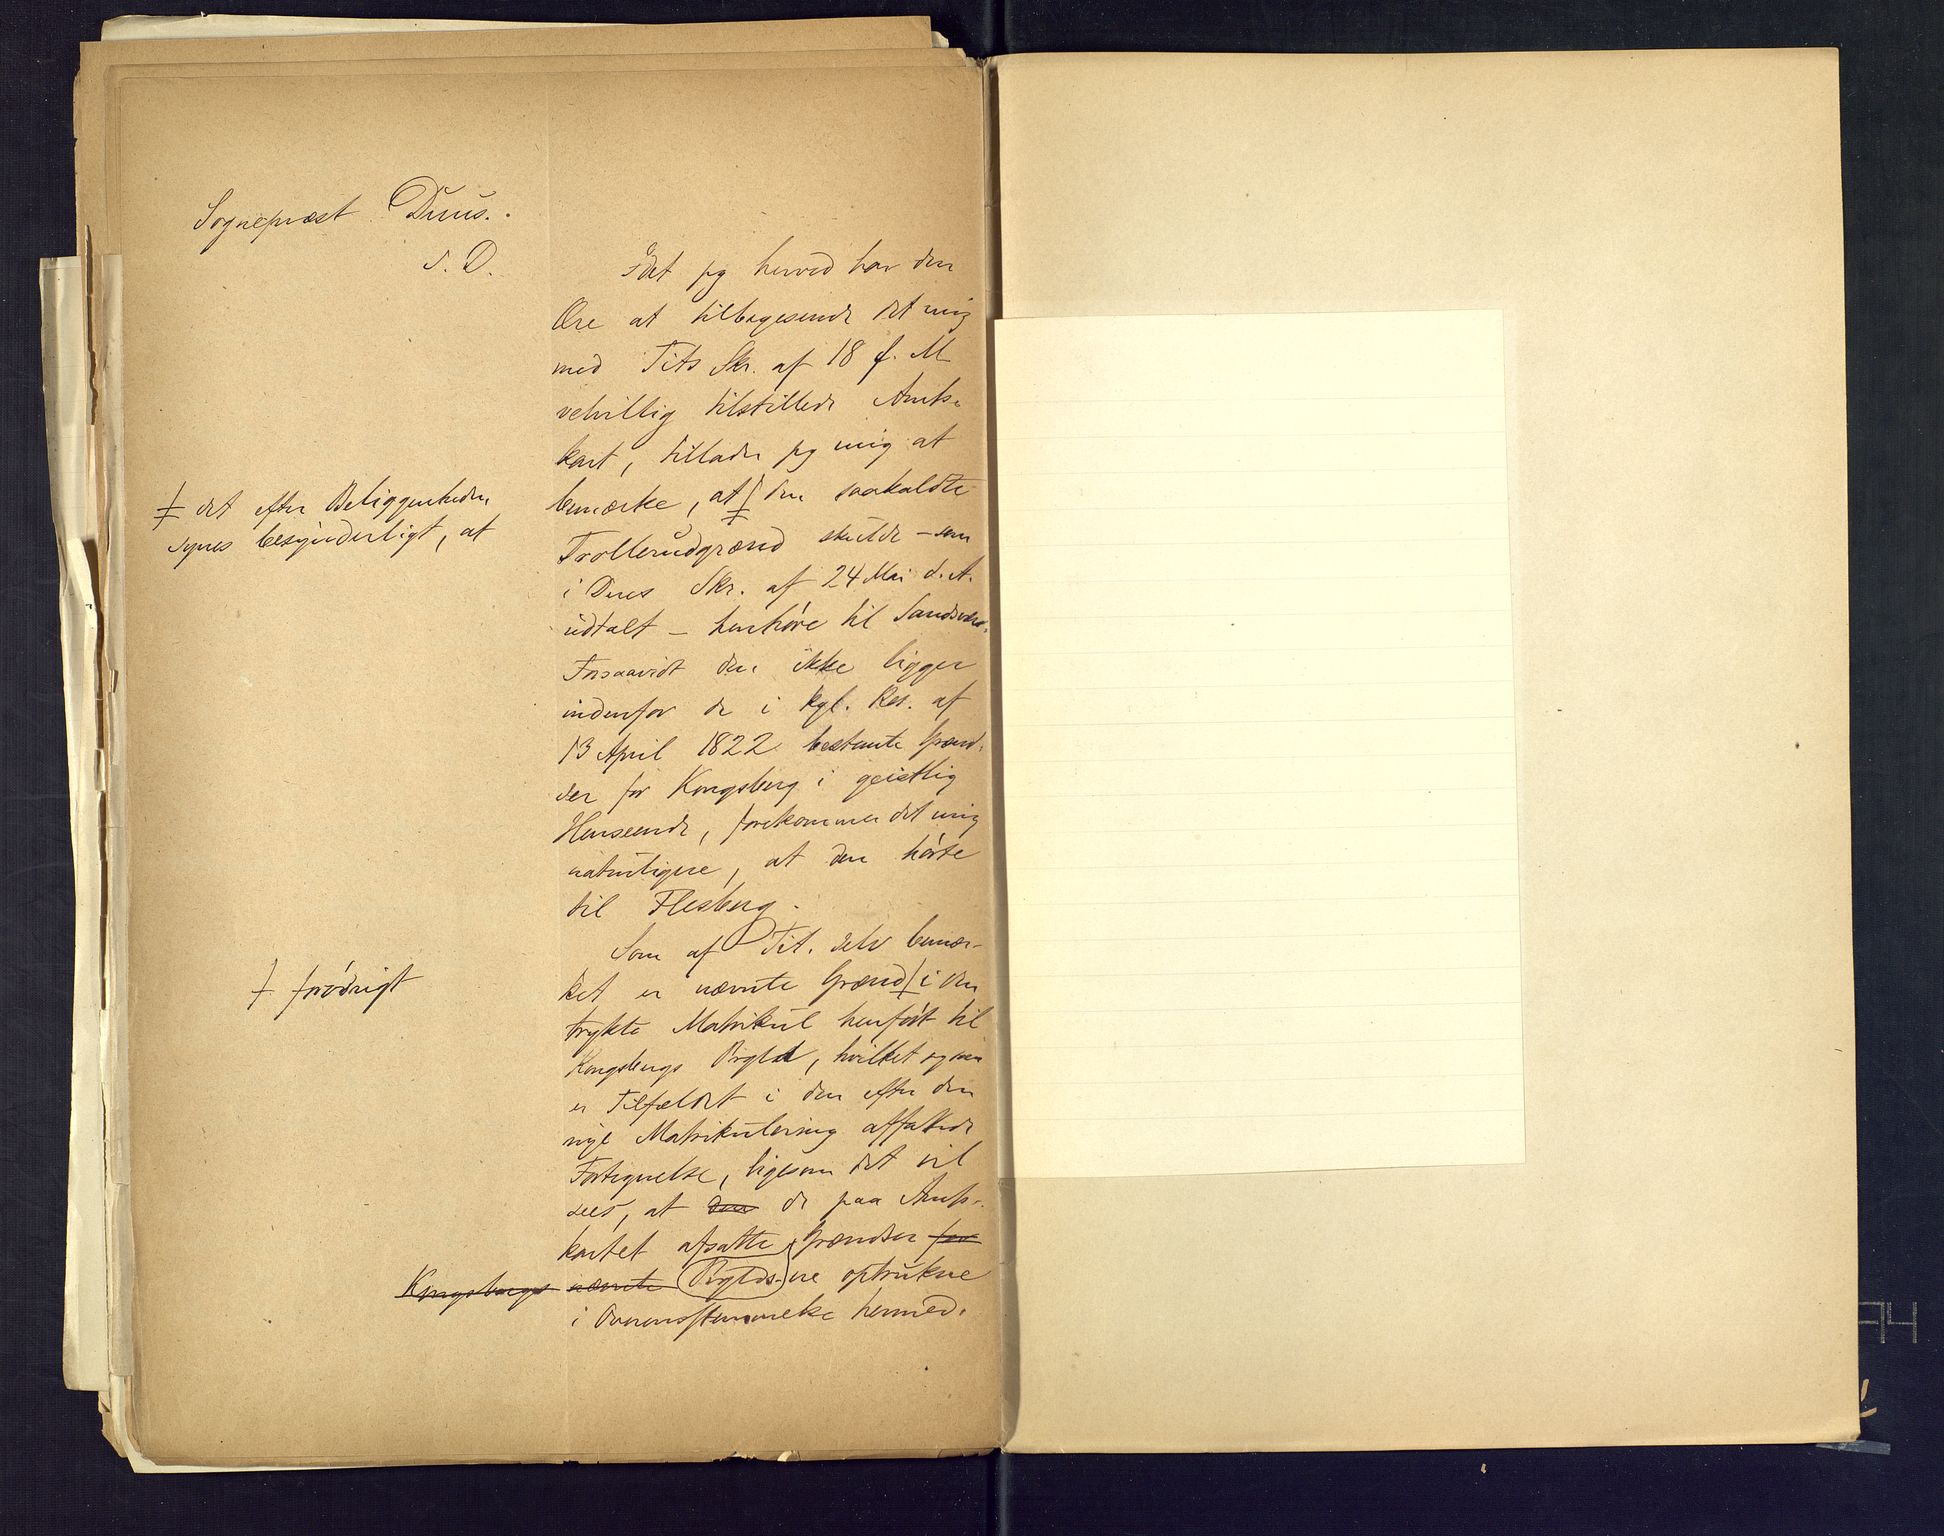 Sognepræst Duus.
S. D.
Idet jeg herved har den
Ære at tilbagesende det mig
med Tits Skr. af 18 f. M
velvillig tilstillede Amts-
kart, tillader jeg mig at
bemærke, at ǂ den saakaldte
Trollerudgrænd skulde – som
i Deres Skr. af 24 Mai d. A.
udtalt – henhøre til Sandsvær.
Forsaavidt den ikke ligger
indenfor de i kgl. Res. af
13 April 1822 bestemte Grænd-
ser for Kongsberg i geistlig
Henseende, forekommer det mig
naturligere, at den hørte
til Flesberg.
Som af Tit. selv bemær-
ket er nævnte Grænd ⌿ i den
trykte Matrikul henført til
Kongsbergs Prgld, hvilket ogsaa
er Tilfældet i den efter den
nye Matrikulering affattede
Fortegnelse, ligesom det vil
sees, at den de paa Amts-
kartet afsatte Grændser for
Kongsbergs nævnte Prglds. ere optrukne
i Overensstemmelse hermed.
ǂ det efter Beliggenheden
synes besynderligt, at
⌿ forøvrigt